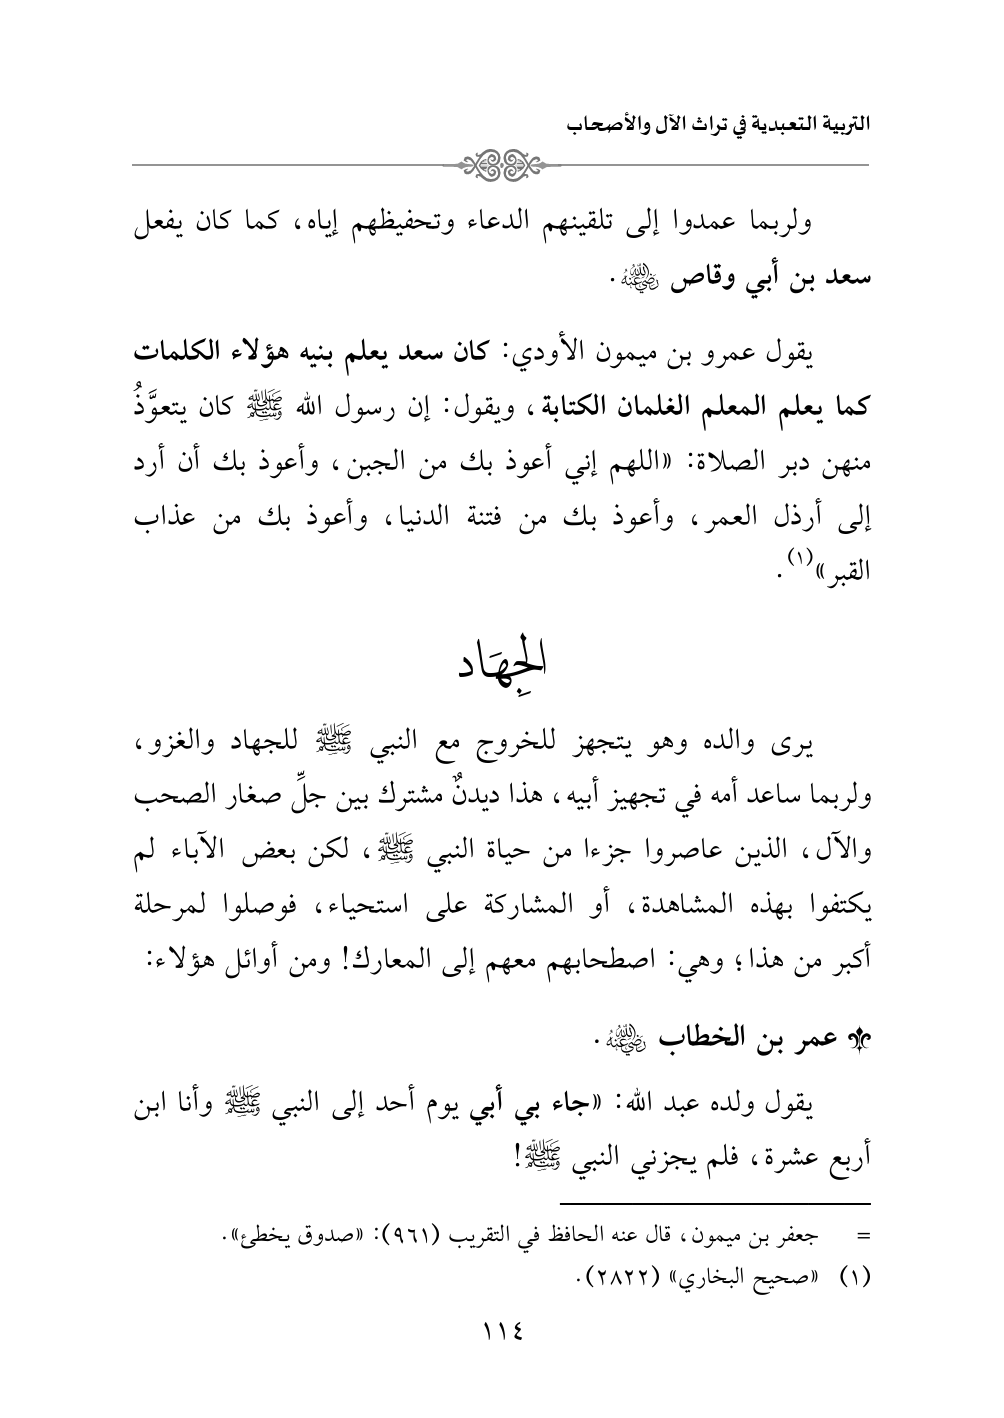 التربية التعبدية في تراث الآل والأصحاب
ولربما عمدوا إلى تلقينهم الدعاء وتحفيظهم إياه، كما كان يفعل
سعد بن أبي وقاص رضي الله عنه.
يقول عمرو بن ميمون الأودي: كان سعد يعلم بنيه هؤلاء الكلمات
كما يعلم المعلم الغلمان الكتابة، ويقول: إن رسول الله ﷺ كان يتعوَّذُ
منهن دبر الصلاة: «اللهم إني أعوذ بك من الجبن، وأعوذ بك أن أرد
إلى أرذل العمر، وأعوذ بك من فتنة الدنيا، وأعوذ بك من عذاب
القبر»(١).
الجِهَاد
يرى والده وهو يتجهز للخروج مع النبي ﷺ للجهاد والغزو،
ولربما ساعد أمه في تجهيز أبيه، هذا ديدنٌ مشترك بين جلِّ صغار الصحب
والآل، الذين عاصروا جزءا من حياة النبي ﷺ، لكن بعض الآباء لم
يكتفوا بهذه المشاهدة، أو المشاركة على استحياء، فوصلوا لمرحلة
أكبر من هذا؛ وهي: اصطحابهم معهم إلى المعارك! ومن أوائل هؤلاء:
عمر بن الخطاب رضي الله عنه.
يقول ولده عبد الله: «جاء بي أبي يوم أحد إلى النبي ﷺ وأنا ابن
أربع عشرة، فلم يجزني النبي ﷺ!
= جعفر بن ميمون، قال عنه الحافظ في التقريب (٩٦١): «صدوق يخطئ».
(١) «صحيح البخاري» (٢٨٢٢).
١١٤